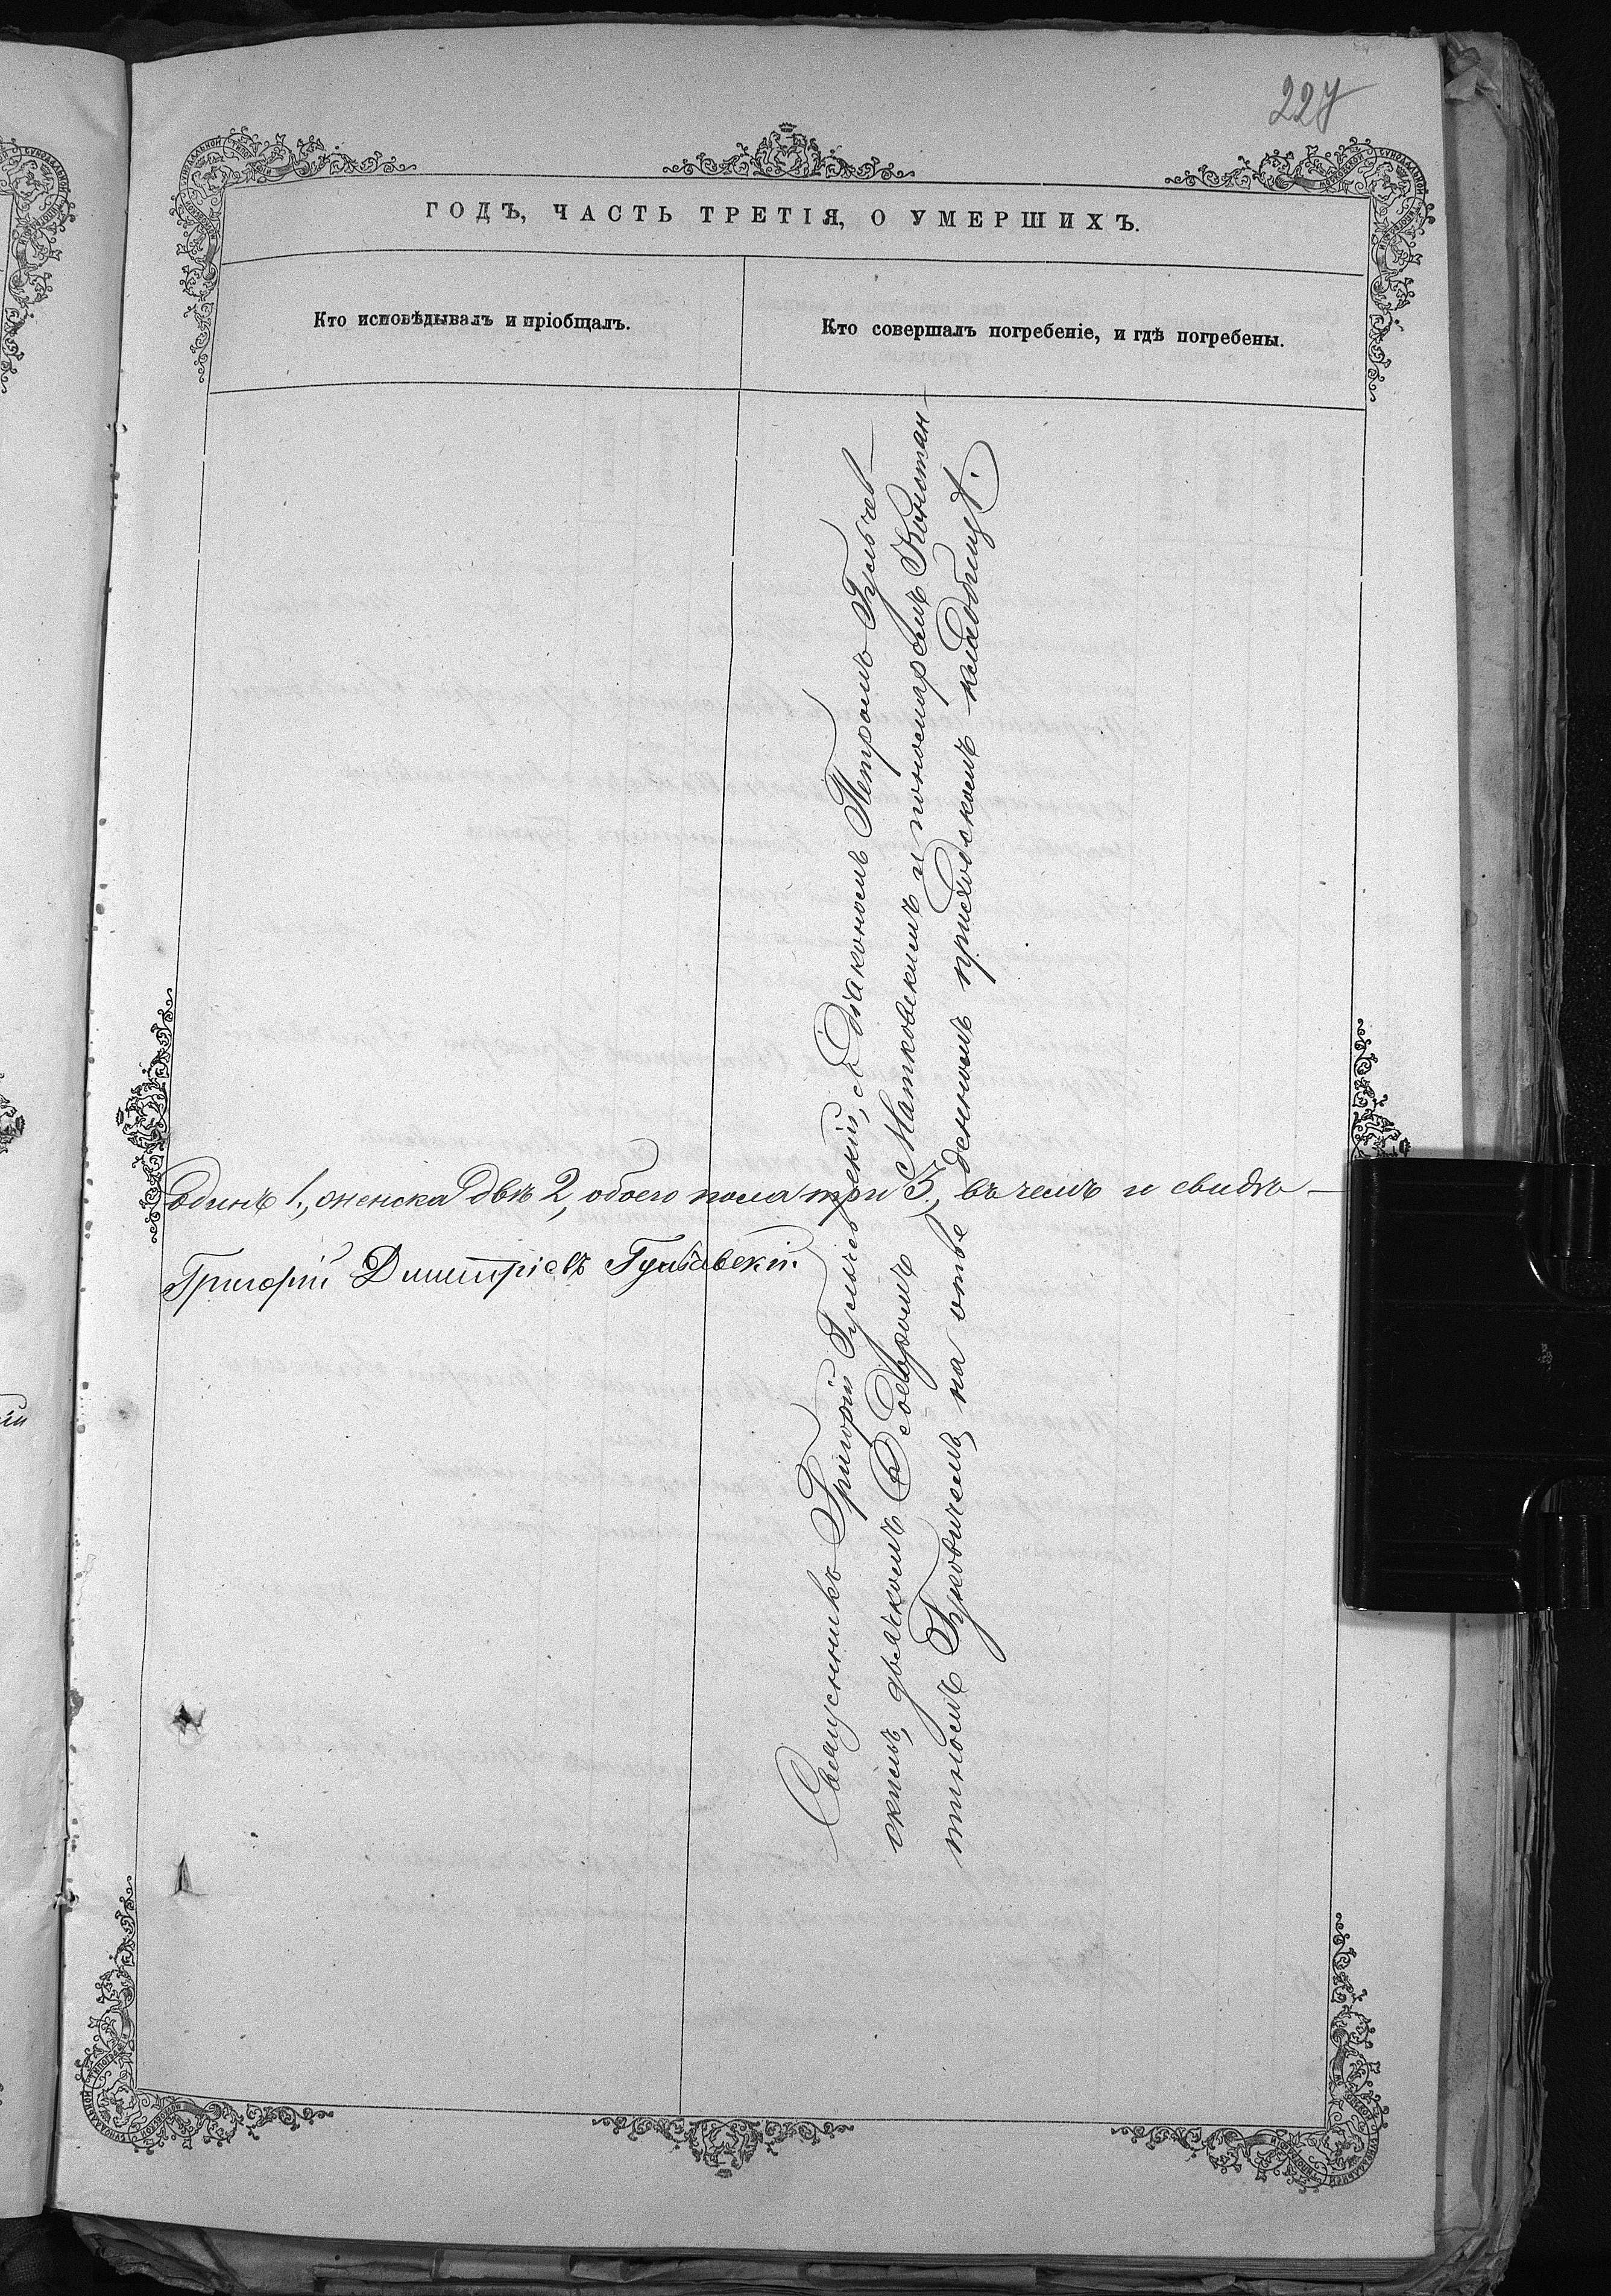 227
ГОДЪ, ЧАСТЬ ТРЕТІЯ, О УМЕРШИХЪ.
Кто исповѣдывалъ и пріобщалъ.
Кто совершалъ погребеніе, и гдѣ погребены.
Священникъ Григорій съ Діакономъ Петромъ
скимъ, дьячкомъ Ѳедоромъ Матковскимъ и пономаремъ Констан-
тиномъ Буковичемъ, на отведенномъ приходскомъ кладбищѣ.
одинъ 1, женска двѣ 2, обоего пола три 3, въ чемъ и свидѣ-
Григорій Димитріевъ